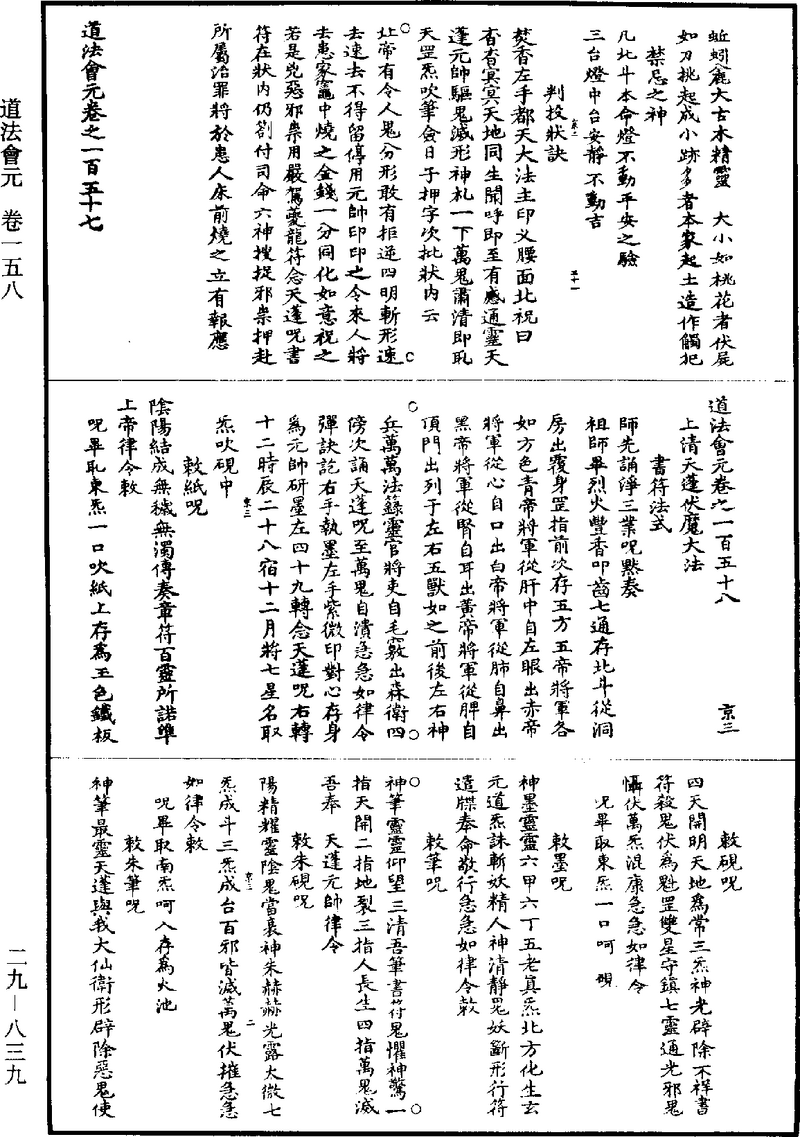 蚯蚓麄大古木精靈　大小如桃花者伏屍
如刀挑起成小跡多者本家起土造作觸犯
禁忌之神
凡北斗本命燈不動平安之驗
三台燈中台安靜不動吉
判投狀訣
焚香左手都天大法主印叉腰面北祝曰
杳杳冥冥天地同生聞呼即至有感通靈天
蓬元帥驅鬼滅形神札一下萬鬼肅清即取
天罡炁吹筆僉日子押字次批狀內云
北帝有令人鬼分形敢有拒逆四明斬形速
去速去不得留停用元帥印印之令來人將
去患家竈中燒之金錢一分同化如意祝之
若是兇惡邪祟用嚴駕夔龍符念天蓬呪書
符在狀內仍劄付司命六神搜捉邪祟押赴
所屬治罪將於患人床前燒之立有報應
道法會元卷之一百五十七
道法會元卷之一百五十八　京三
上清天蓬伏魔大法
書符法式
師先誦淨三業呪黙奏
祖師畢烈火豐香叩齒七通存北斗從洞
房出覆身罡指前次存五方五帝將軍各
如方色青帝將軍從肝中自左眼出赤帝
將軍從心自口出白帝將軍從肺自鼻出
黑帝將軍從腎自耳出黃帝將軍從脾自
頂門出列于左右五獸如之前後左右神
兵萬萬法籙靈官將吏自毛竅出森衛四
傍次誦天蓬呪至萬鬼自潰急急如律令
彈訣訖右手執墨左手紫微印對心存身
為元帥研墨左四十九轉念天蓬呪右轉
十二時辰二十八宿十二月將七星名取
炁吹硯中
京三
敕紙呪
陰陽結成無穢無濁傳奏章符百靈所諾準
上帝律令敕
呪畢取東炁一口吹紙上存為玉色鐵板
敕硯呪
四天開明天地為常三炁神光辟除不祥書
符殺鬼伏為魁罡雙星守鎮七靈通光邪鬼
懾伏萬炁混康急急如律令
呪畢取東炁一口呵硯
敕墨呪
神墨靈靈六甲六丁五老真炁北方化生玄
元道炁誅斬妖精人神清靜鬼妖斷形行符
造牒奉命敬行急急如律令敕
敕筆呪
神筆靈靈仰望三清吾筆書符鬼懼神驚一
指天開二指地裂三指人長生四指萬鬼滅
吾奉　天蓬元帥律令
敕朱硯呪
陽精耀靈陰鬼當衰神朱赫赫光露太微七
炁成斗三炁成台百邪皆滅萬鬼伏摧急急
如律令敕
呪畢取南炁呵入存為火池
敕朱筆呪
神筆最靈天蓬與我大仙衛形辟除惡鬼使
道法會元　卷一五八
二九—八三九